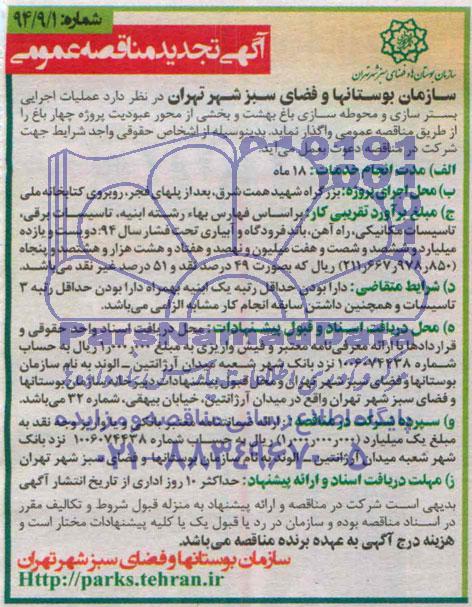 شماره: ۹۴/۹/۱
آگهی تجدید مناقصه عمومی
سازمان بوستانها و فضای سبز شهر تهران
سازمان بوستانها و فضای سبز شهر تهران در نظر دارد عملیات اجرایی
بستر سازی و محوطه سازی باغ بهشت و بخشی از محور عبودیت پروژه چهار باغ را
از طریق مناقصه عمومی واگذار نماید. بدینوسیله از اشخاص حقوقی واجد شرایط جهت
شرکت در مناقصه دعوت بعمل می آید.
الف) مدت انجام خدمات: ۱۸ ماه
ب) محل اجرای پروژه: بزرگراه شهید همت شرق، بعد از پلهای فجر، روبروی کتابخانه ملی
ج) مبلغ برآورد تقریبی کار: براساس فهارس بهاء رشته ابنیه، تاسیسات برقی،
تاسیسات مکانیکی، راه آهن، باند فرودگاه و آبیاری تحت فشار سال ۹۴: دویست و یازده
میلیارد و ششصد و شصت و هفت میلیون و نهصد و هفتاد و هشت هزار و هشتصد و پنجاه
(۲۱۱٫۶۶۷٫۹۷۸٫۸۵۰) ریال که بصورت ۴۹ درصد نقد و ۵۱ درصد غیر نقد می‌باشد.
د) شرایط متقاضی: دارا بودن حداقل رتبه یک ابنیه بهمراه دارا بودن حداقل رتبه ۳
تاسیسات و همچنین داشتن سابقه انجام کار مشابه الزامی می‌باشد.
ه) محل دریافت اسناد و قبول پیشنهادات: محل دریافت اسناد واحد حقوقی و
قراردادها با ارائه معرفی نامه معتبر و فیش واریزی به مبلغ ریال به حساب
شماره ۱۰۰۶۰۷۴۴۳۸ نزد بانک شهر شعبه میدان آرژانتین ـ الوند به نام سازمان
بوستانها و فضای سبز شهر تهران و محل قبول پیشنهادات دبیرخانه سازمان بوستانها
و فضای سبز شهر تهران واقع در میدان آرژانتین، خیابان بیهقی، شماره ۳۲ می‌باشد.
و) سپرده شرکت در مناقصه: ارائه ضمانتنامه معتبر بانکی و یا واریز وجه نقد به
مبلغ یک میلیارد ریال به حساب شماره ۱۰۰۶۰۷۴۴۳۸ نزد بانک
شهر شعبه میدان آرژانتین ـ الوند به نام سازمان بوستانها و فضای سبز شهر تهران
ز) مهلت دریافت اسناد و ارائه پیشنهاد: حداکثر ۱۰ روز اداری از تاریخ انتشار آگهی
بدیهی است شرکت در مناقصه و ارائه پیشنهاد به منزله قبول شروط و تکالیف مقرر
در اسناد مناقصه بوده و سازمان در رد یا قبول یک یا کلیه پیشنهادات مختار است و
هزینه درج آگهی به عهده برنده مناقصه می‌باشد.
سازمان بوستانها و فضای سبز شهر تهران
Http://parks.tehran.ir
ParsNamadData
پایگاه اطلاع رسانی مناقصه و مزایده
۰۲۱-۸۸۳۴۹۶۷۰-۵